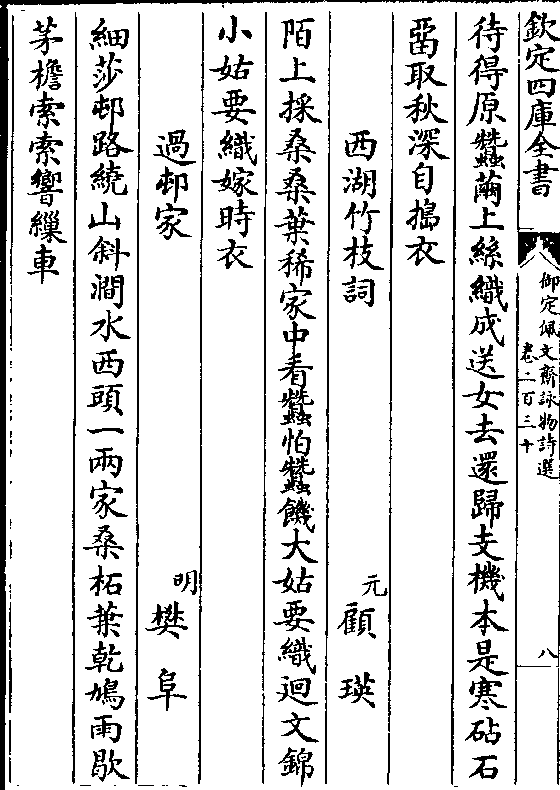 欽定四庫全書
御定佩文齋詠物詩選
卷二百三十
八
待得原蠶繭上絲織成送女去還歸支機本是寒砧石
留取秋深自搗衣
西湖竹枝詞
元顧瑛
陌上採桑桑葉稀家中看蠶怕蠶饑大姑要織迴文錦
小姑要織嫁時衣
過邨家
明樊阜
細莎邨路繞山斜澗水西頭一兩家桑柘葉乾鳩雨歇
茅檐索索響繅車